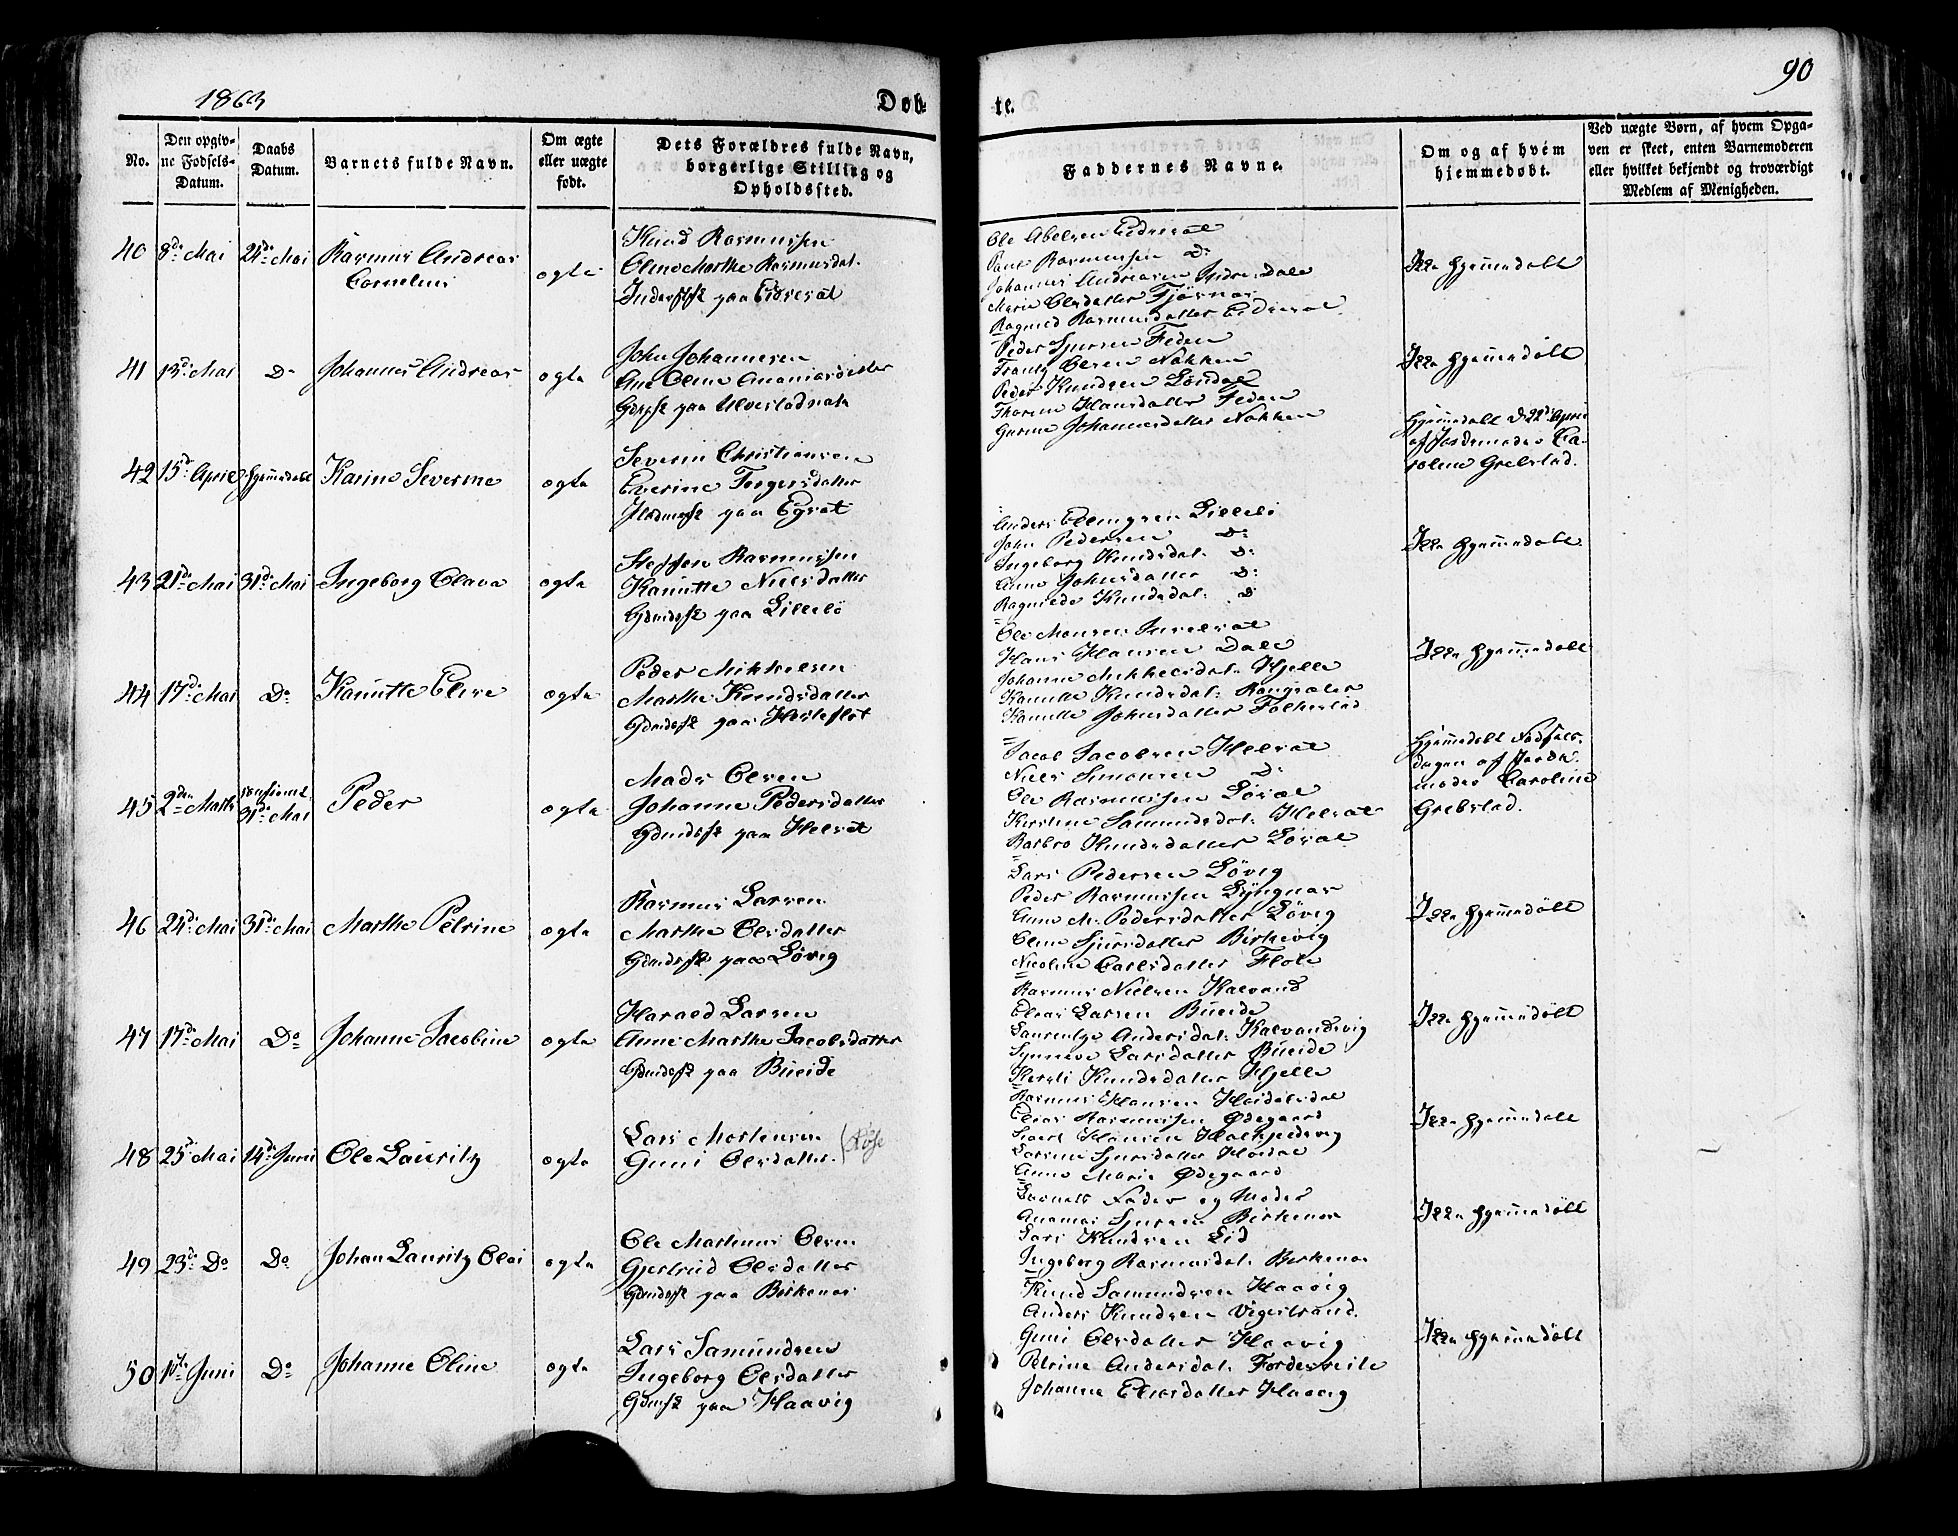 1863
Døb-
te.
90
No.
Den opgiv-
ne Fødsels-
Datum.
Daabs
Datum.
Barnets fulde Navn.
Om ægte
eller uægte
født.
Dets Forældres fulde Navn,
borgerlige Stilling og
Opholdssted.
Faddernes Navne.
Om og af hvem
hjemmedøbt.
Ved uægte Børn, af hvem Opga-
ven er skeet, enten Barnemoderen
eller hvilket bekjendt og troværdigt
Medlem af Menigheden.
40 8de Mai 24de Mai Rasmus Andreas
Cornelius
ægte
Knud Rasmussen
Oline Marthe Rasmusdat.
paa Eidseral
Ole Abelsen
Rasmussen Do
Johannes Andreasen Dale
Marie Olsdatter
Ragnild Rasmusdatter
Ikke hjemmedøbt
41 13de Mai Do Johannes Andreas
ægte
John Johannesen
Ane Oline Ananiasdatter
paa
Peder Sjursen Feden
Frantz Olsen Nakken
Peder Knudsen
Thorine Hansdatter Feden
Gurine Johannesdatter Nakken
Ikke hjemmedøbt
42 15de April hjemmedøbt Karine Severine
ægte
Severin Christiansen
Everine
paa Egsæt
hjemmedøbt d. 22de April
af Jordemoder Ca-
roline Grebstad.
43 21de Mai 31de Mai Ingeborg Olava
ægte
Steffen Rasmussen
Kanutte Nielsdatter
Gdmdsfk paa Lillebø
Anders Lillebø
John Pedersen Do
Ingeborg Knudsdat. Do
Anne Johnsdatter Do
Knudsdat. Do
Ikke hjemmedøbt.
44 17de Mai Do Kanutte Elise
ægte
Peder Mikkelsen
Marthe Knudsdatter
Gdmdsfk paa Hesteflot
Ole Monsen
Hans Hansen Dale
Johanne Mikkelsdat. Hjelle
Kanutte Knudsdat.
Kanutte Johnsdatter Folkestad
Ikke hjemmedøbt
45 2den Marts
31de Mai
Peder
ægte
Mads Olsen
Johanne Pedersdatter
Gdmdsfk paa Helsæt
Jacob Jacobsen Helsæt
Niels Simonsen Do
Ole Rasmussen
Kirstine Samundsdat. Helsæt
Barbro Knudsdatter
hjemmedøbt Fødsels-
dagen af Jorde-
moder Caroline
Grebstad.
46 24de Mai 31de Mai Marthe Petrine
ægte
Rasmus Larsen
Marthe Olsdatter
Gdmdsfk paa Løvig
Lars Pedersen Løvig
Peder Rasmussen Lyngnæs
Anne M. Pedersdatter Løvig
Oline Sjursdatter Birkevig
Nicoline Carlsdatter Flote
Ikke hjemmedøbt
47 17de Mai Do Johanne Jacobine
ægte
Harald Larsen
Anne Marthe Jacobsdatter
Gdmdsfk paa Bueide
Rasmus Nielsen Kalvand
Elias Larsen Bueide
Laurentze Andersdat. Kalvandsvig
Synneve Larsdatter Bueide
Knudsdatter Hjelle
Ikke hjemmedøbt
48 25de Mai 14de Juni Ole Lauritz
ægte
Lars Mortensen
Guni Olsdatter
Rasmus Hansen
Elias Rasmussen Ødegaard
Hansen
Sjursdatter
Anne Marie Ødegaard
Ikke hjemmedøbt
49 23de Do Do Johan Lauritz Olai
ægte
Ole Martinus Olsen
Gjertrud Olsdatter
Gdmdsfk paa Birkenæs
Barnets Fader og Moder
Sjursen Birkenæs
Lars Knudsen Lid
Ingeborg Rasmusdat. Birkenæs
Ikke hjemmedøbt
50 1ste Juni Do Johanne Oline
ægte
Lars Samundsen
Ingeborg Olsdatter
paa Haavig
Knud Samundsen Haavig
Anders Knudsen Vigestrand.
Guni Olsdatter Haavig
Petrine Andersdat.
Johanne Haavig
Ikke hjemmedøbt